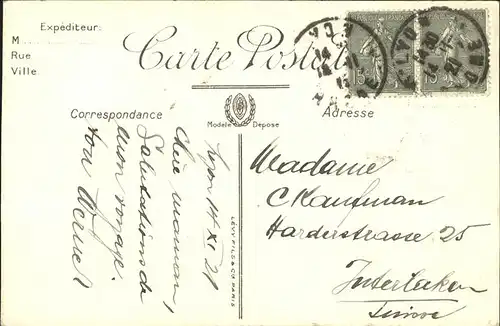 Expéditeur:
M
Rue
Ville
Carte Postale
Correspondance
Modèle Déposé
Adresse
Lyon 14 XI 21
Chère maman,
Salutations de
mon voyage.
ton Werner
LEVY FILS & Cie PARIS
Madame
C Kaufman
Harderstrasse 25
Interlaken
Suisse